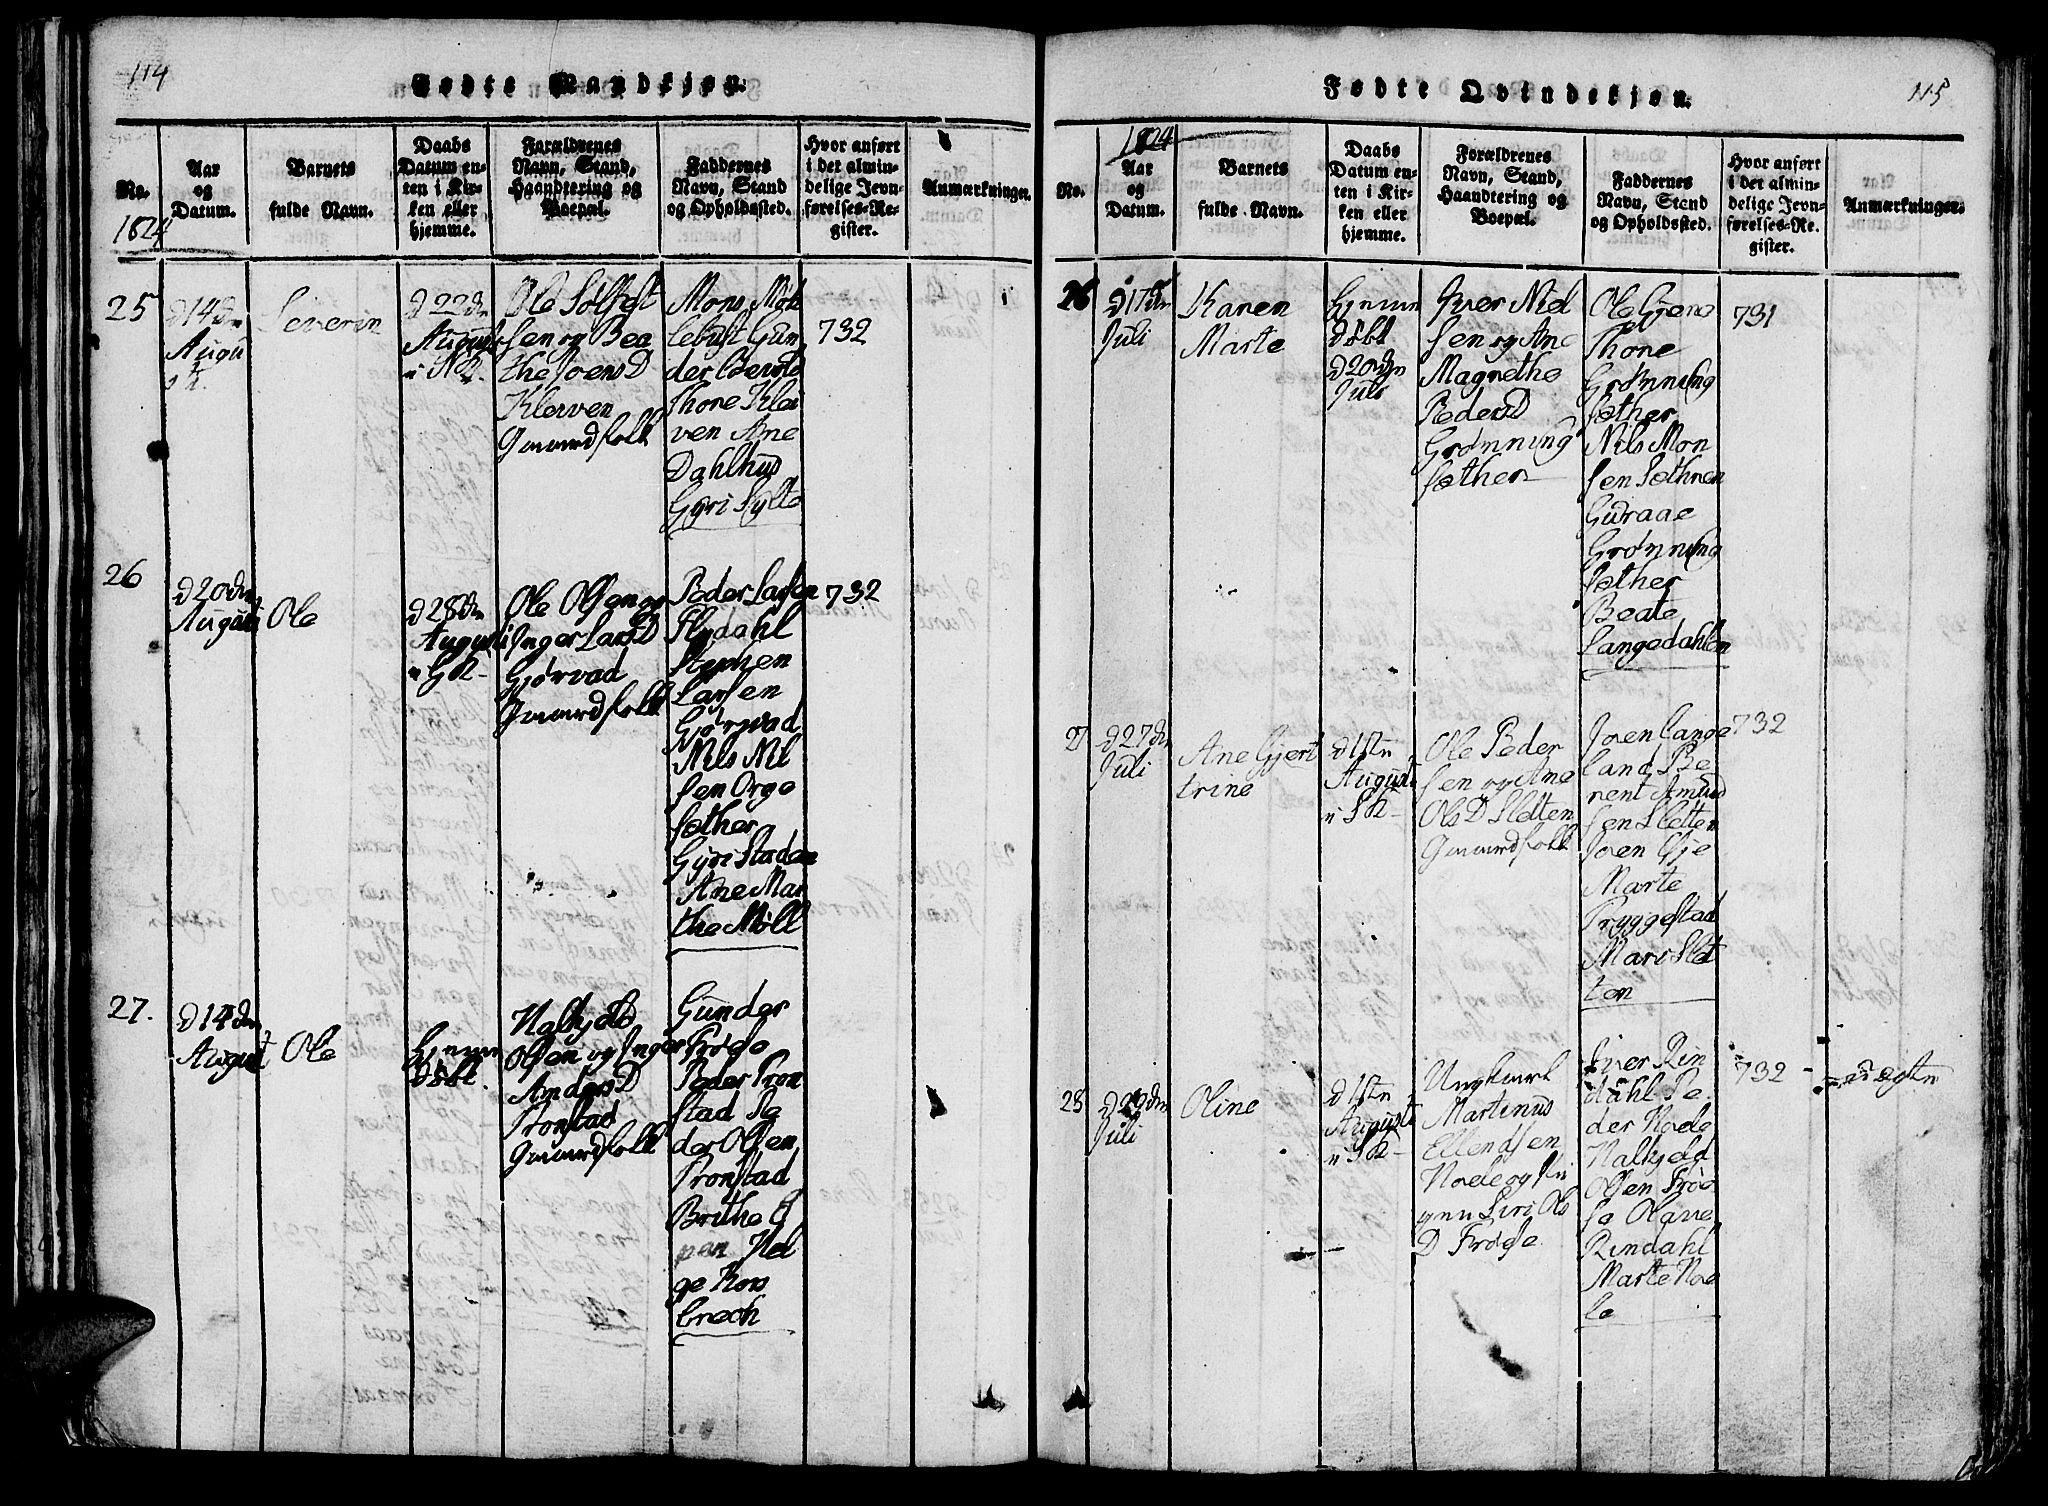 114
Fødte Mandkjøn.
No.
Aar og Datum.
Barnets fulde Navn.
Daabs Datum enten i Kirken eller hjemme.
Forældrenes Navn, Stand, Haandtering og Boepæl.
Faddernes Navn, Stand og Opholdssted.
Hvor anført i det almindelige Jevnførelses-Register.
Anmærkninger.
1824
25
d 14dn
Augu
st.
Severin
d 22dn
August
i
Ole Solfest
sen og Bea
the Joens D
Klerven
Gaardfolk
Mons Mök
lebust Gun
der Berild
Thore Klei
ven Ane
Dahlhus
Gyri Sylte
732
26
d 20dn
August
Ole
d 28dn
August
i
Ole Olsen og
Inger Lars D
Gjørvad
Gaardfolk
Peder Larsen
Flydahl
Stephen
Larsen
Gjørvad
Nils Nil
sen Orge
sæther
Gyri Staden
Ane Mar
the Möll
732
27.
d 14dn
August
Ole
Hjemme
døbt
Halkjeld
Olsen og Inger
Anders D
Tronstad
Gaardfolk
Gunder
Frøse
Peder Tron
stad
der Olsen
Tronstad
Brithe
Hel
ge
brech
115
Fødte Qvindekjøn.
1824
No.
Aar og Datum.
Barnets fulde Navn.
Daabs Datum enten i Kirken eller hjemme.
Forældrenes Navn, Stand, Haandtering og Boepæl.
Faddernes Navn, Stand og Opholdssted.
Hvor anført i det almindelige Jevnførelses-Register.
Anmærkninger.
26
d 17dn
Juli
Karen
Marte
Hjemme
døbt
d 20dn
Juli
Iver Niel
sen og Ane
Magrethe
Peders D
Grønning
sæther
Ole Gjere
Thore
Grønning
sæther
Nils Mon
sen Sæthren
Guraae
Grønning
sæther
Beate
Langedahlen
731
27
d 27dn
Juli
Ane Gjert
trine
d 1stn
August
i
Ole Peder
sen og Ane
Ols D Sletten
Gaardfolk
Joen Lange
land Be
rent Amund
sen Sletten
Joen Øje
Marte
Tryggestad
Mari Slet
ten
732
28
d 29dn
Juli
Oline
d 1stn
August
i
Ungkarl
Martinus
Ellendsen
Siri Ols
D Frøse
Iver Rin
dahl Pe
der
Halkjeld
Olsen Frøe
se Olave
Rindahl
Marte
732
uægtn